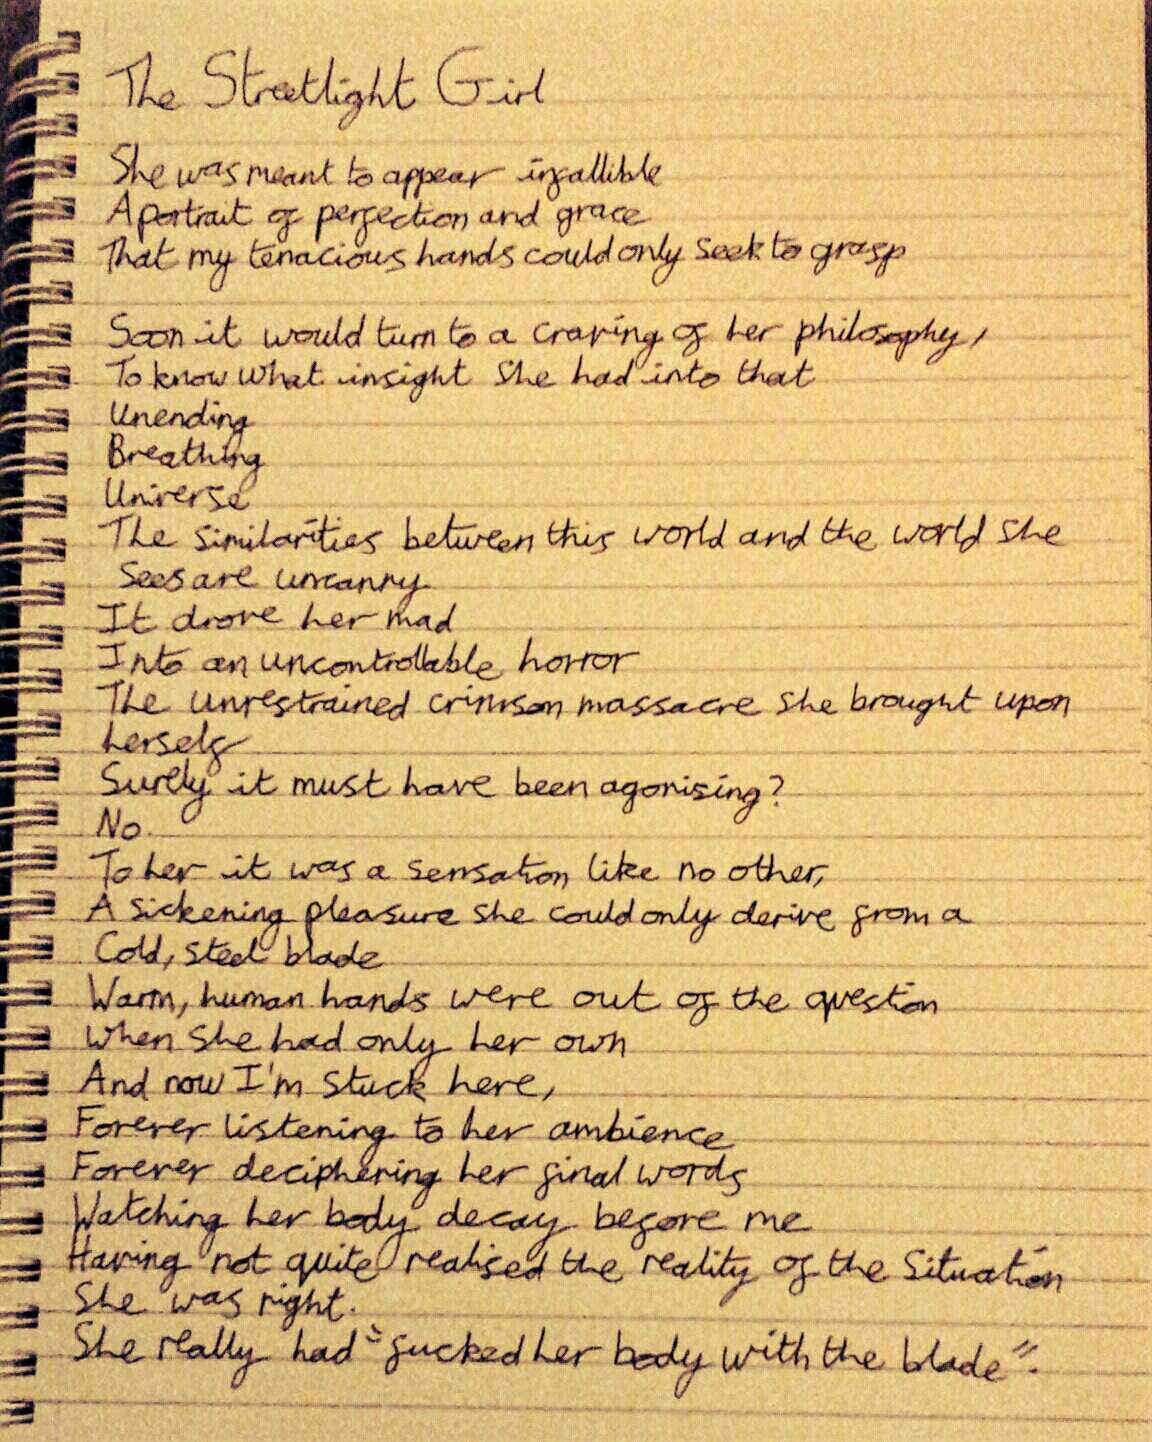 The Streetlight Girl
She was meant to appear infallible
A portrait of perfection and grace
That my tenacious hands could only seek to grasp
Soon it would turn to a craving of her philosophy,
To know what insight she had into that
Unending
Breathing
Universe
The similarities between this world and the world she
sees are uncanny
It drove her mad
Into an uncontrollable horror
The unrestrained crimson massacre she brought upon
herself
Surely it must have been agonising?
No.
To her it was a sensation like no other,
A sickening pleasure she could only derive from a
Cold, steel blade
Warm, human hands were out of the question
When she had only her own
And now I'm stuck here,
Forever listening to her ambience
Forever deciphering her final words
Watching her body decay before me
Having not quite realised the reality of the situation
She was right.
She really had "fucked her body with the blade".